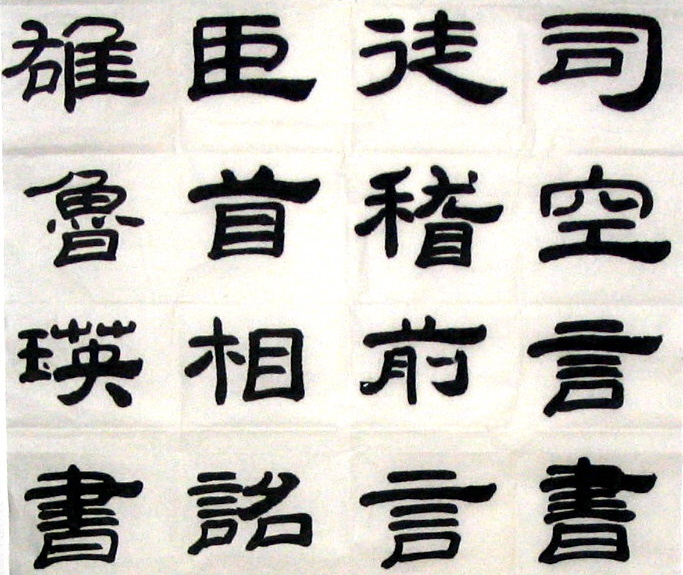 司徒臣雄
空稽首魯
言前相瑛
書言詔書